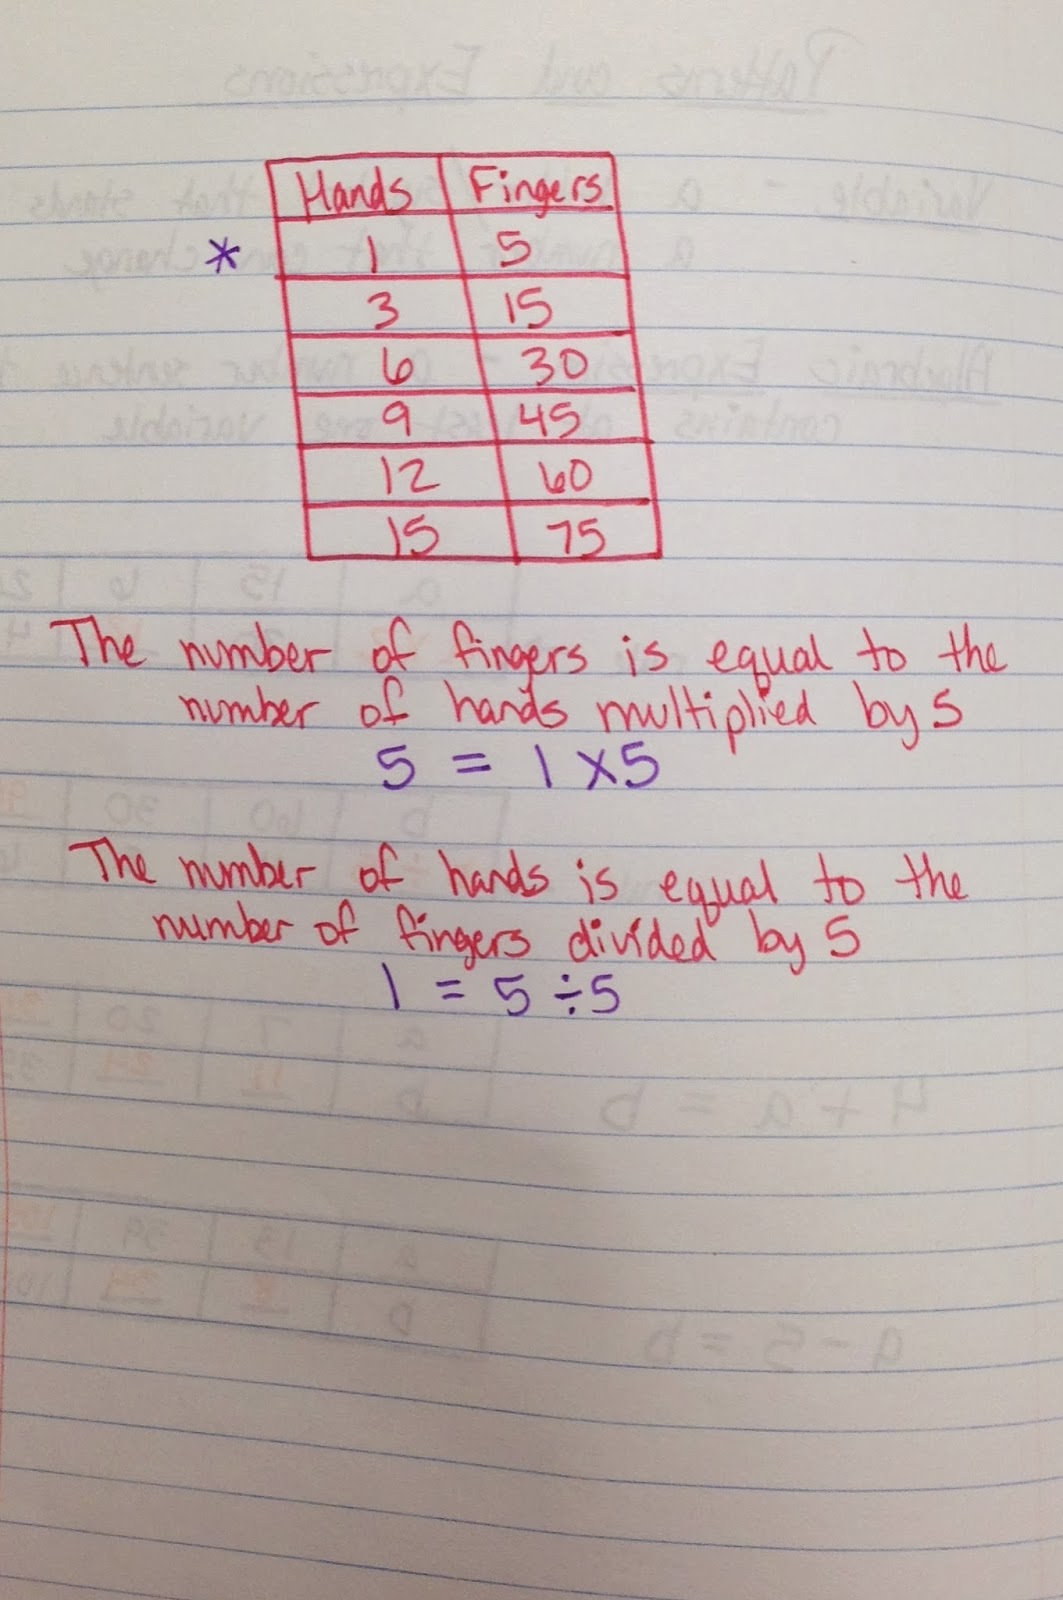 Hands Fingers
* 1 5
3 15
6 30
9 45
12 60
15 75
The number of fingers is equal to the
number of hands multiplied by 5
5 = 1 x 5
The number of hands is equal to the
number of fingers divided by 5
1 = 5 ÷ 5